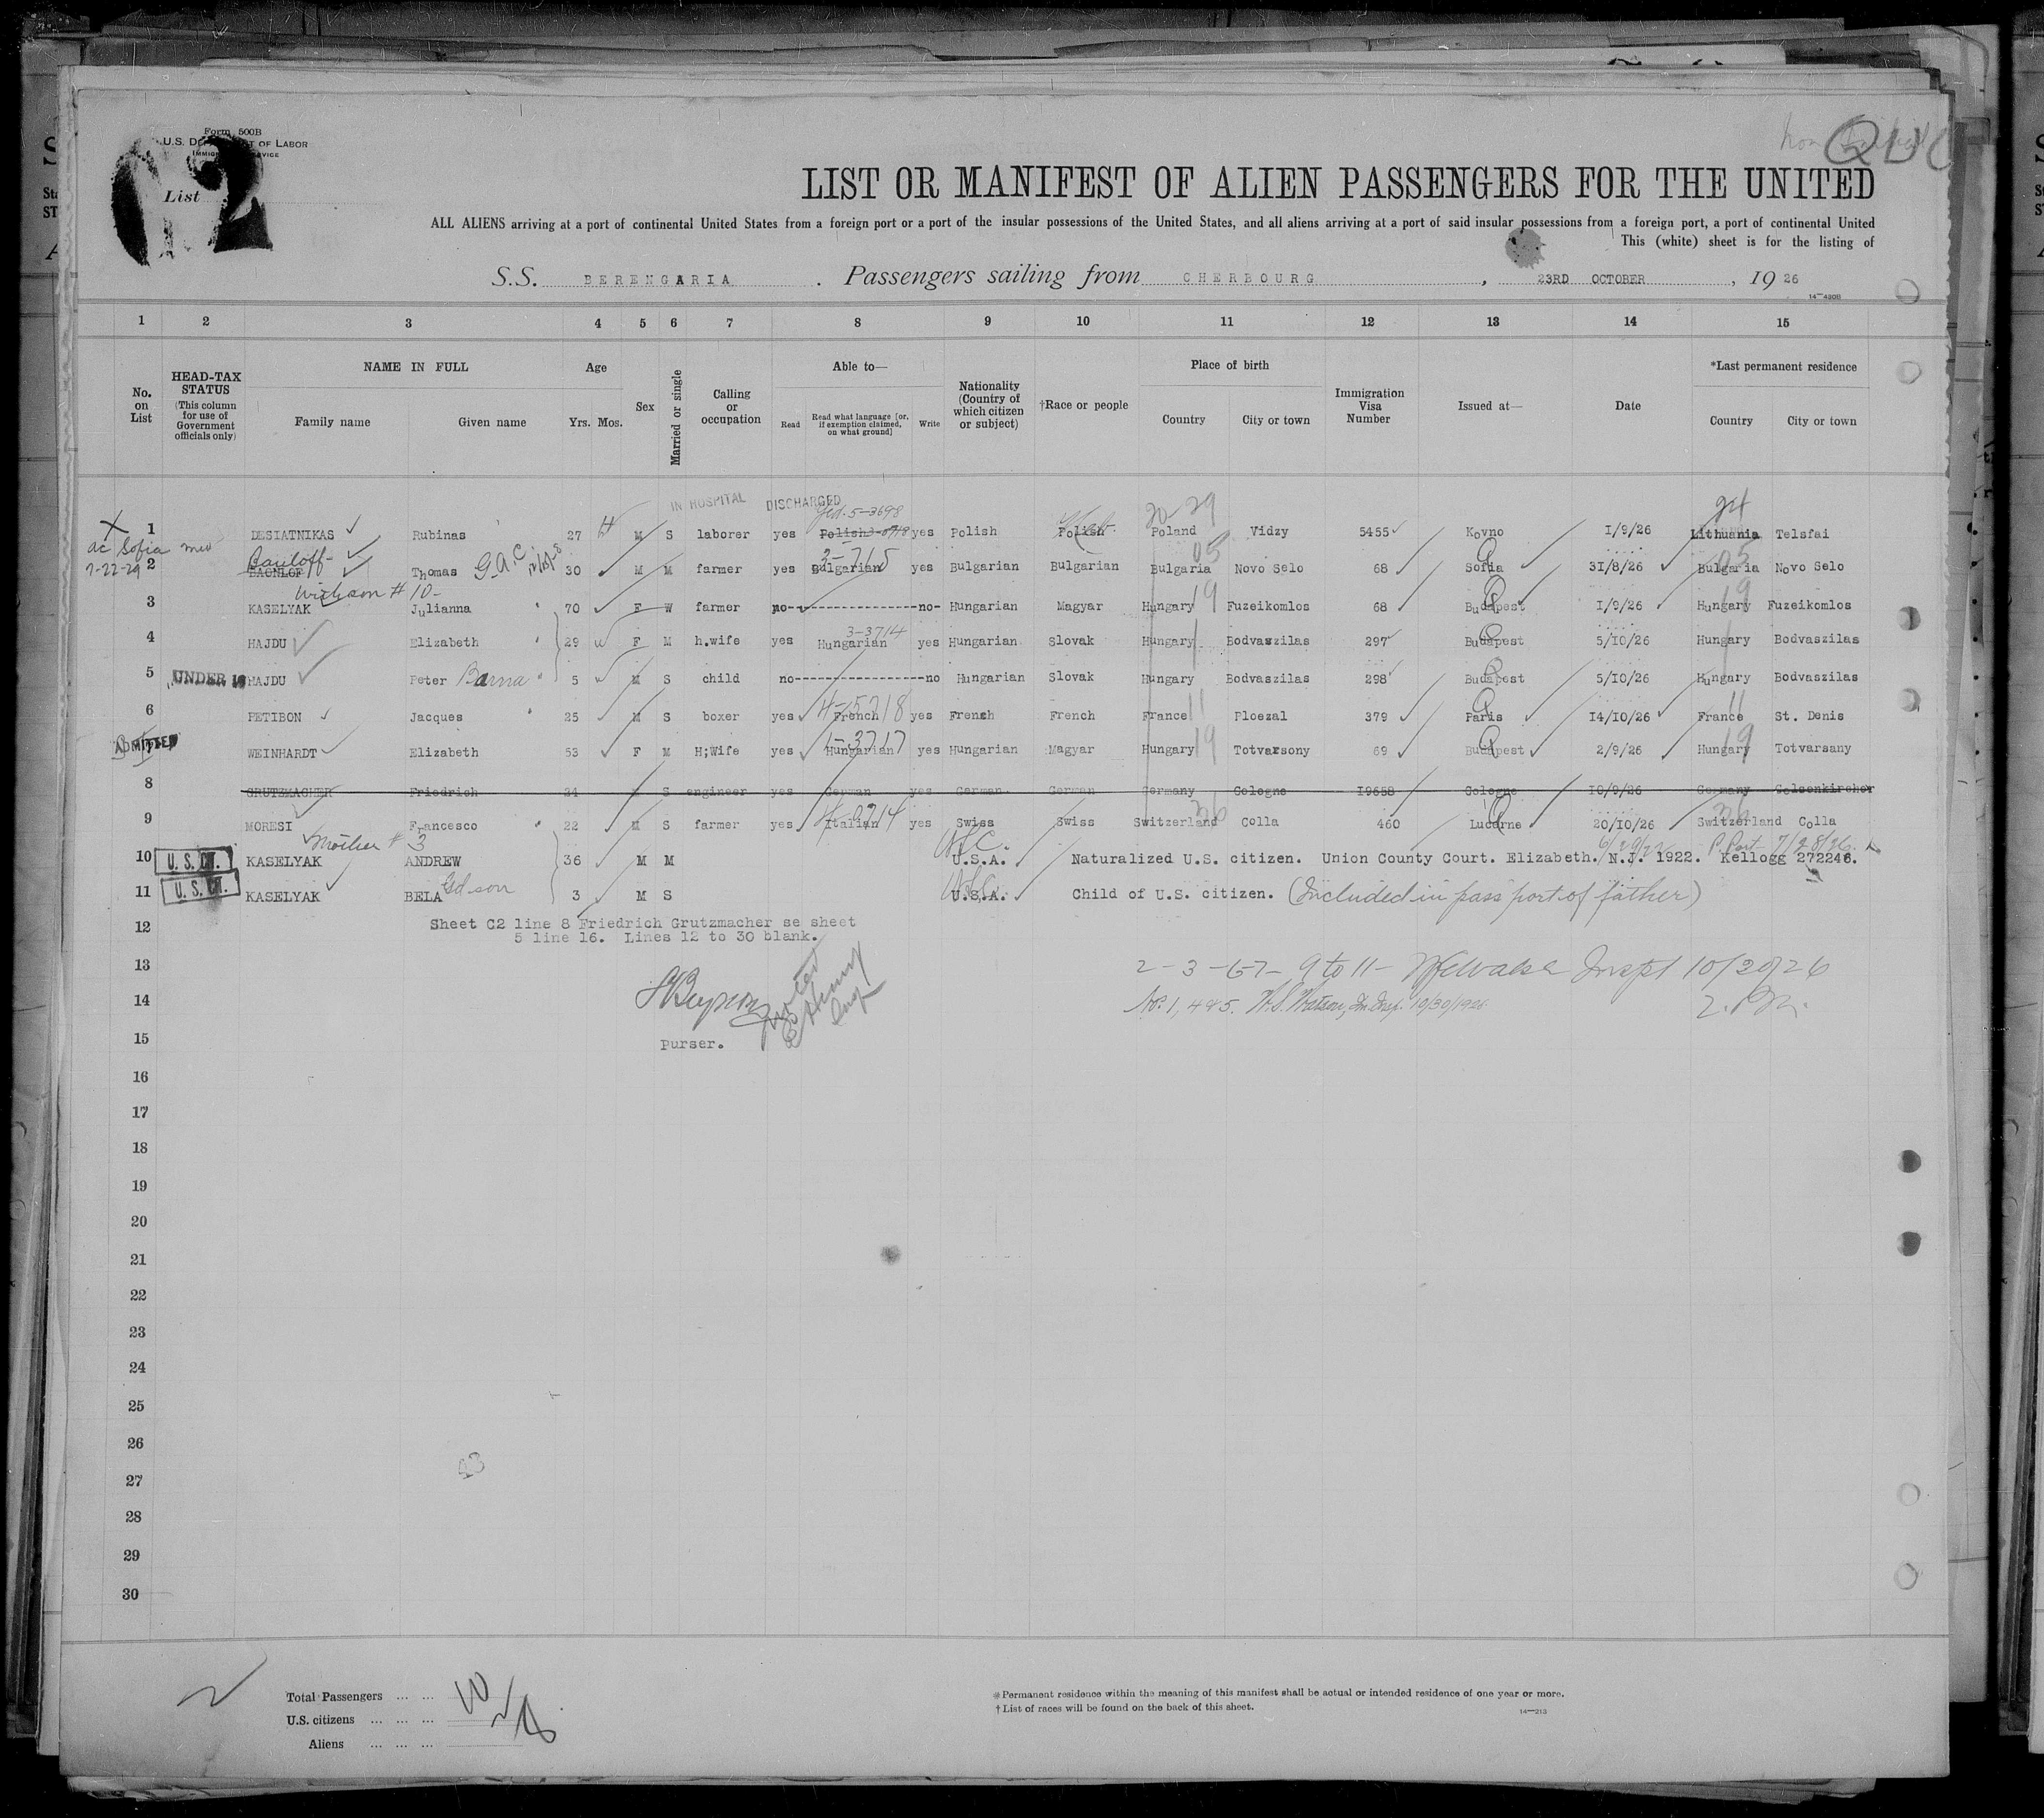 Form 500B
U.S. DEPARTMENT OF LABOR
IMMIGRATION SERVICE
List C2
LIST OR MANIFEST OF ALIEN PASSENGERS FOR THE UNITED
ALL ALIENS arriving at a port of continental United States from a foreign port or a port of the insular possessions of the United States, and all aliens arriving at a port of said insular possessions from a foreign port, a port of continental United
This (white) sheet is for the listing of
S.S. BERENGARIA . Passengers sailing from CHERBOURG , 23RD OCTOBER , 19 26
14—480B
1 2 3 4 5 6 7 8 9 10 11 12 13 14 15
No. on List
HEAD-TAX STATUS (This column for use of Government officials only)
NAME IN FULL
Family name Given name
Age
Yrs. Mos.
Sex
Married or single
Calling or occupation
Able to—
Read Read what language [or, if exemption claimed, on what ground] Write
Nationality (Country of which citizen or subject)
†Race or people
Place of birth
Country City or town
Immigration Visa Number
Issued at—
Date
*Last permanent residence
Country City or town
IN HOSPITAL DISCHARGED
5-3698 20-29 24
1 DESIATNIKAS Rubinas 27 M S laborer yes Polish yes Polish Polish Poland Vidzy 5455 Kovno 1/9/26 Lithuania Telsfai
ac Sofia
7-22-29
Pauloff 3-715 05 05
2 BAONLOF Thomas G.A.C. 30 M M farmer yes Bulgarian yes Bulgarian Bulgarian Bulgaria Novo Selo 68 Sofia 31/8/26 Bulgaria Novo Selo
with son # 10-
3 KASELYAK Julianna 70 F W farmer no no- Hungarian Magyar Hungary 19 Fuzeikomlos 68 Budapest 1/9/26 Hungary 19 Fuzeikomlos
3-3714
4 HAJDU Elizabeth 29 F M h.wife yes Hungarian yes Hungarian Slovak Hungary Bodvaszilas 297 Budapest 5/10/26 Hungary Bodvaszilas
5 UNDER 16 HAJDU Peter Barna 5 M S child no no Hungarian Slovak Hungary Bodvaszilas 298 Budapest 5/10/26 Hungary Bodvaszilas
6 PETIBON Jacques 25 M S boxer yes French yes French French France 11 Ploezal 379 Paris 14/10/26 France 11 St. Denis
ADMITTED
WEINHARDT Elizabeth 53 F M H;Wife yes Hungarian yes Hungarian Magyar Hungary 19 Totvarsony 69 Budapest 2/9/26 Hungary 19 Totvarsany
8 GRUTZMACHER Friedrich 24 M S engineer yes German yes German German Germany Cologne 19658 Cologne 10/9/26 Germany Gelsenkircher
9 MORESI Francesco 22 M S farmer yes Italian yes Swiss Swiss Switzerland Colla 460 Lucarne 20/10/26 Switzerland Colla
Mother # 3
10 U.S. CIT. KASELYAK ANDREW 36 M M U.S.A. Naturalized U.S. citizen. Union County Court. Elizabeth. N.J. 1922. Kellogg 272246.
11 U.S. CIT. KASELYAK BELA Gd son 3 M S U.S.A. Child of U.S. citizen. (Included in passport of father)
12 Sheet C2 line 8 Friedrich Grutzmacher se sheet
5 line 16. Lines 12 to 30 blank.
13 9 to 11- Inspt 10/30/26
14 No. 1, 4&5. H.S. Watson, Im. Insp. 10/30/1926
15 purser.
16
17
18
19
20
21
22
23
24
25
26
27
28
29
30
43
Total Passengers ... ... 10
U.S. citizens ... ... ... 2
Aliens ... ... ... 8
*Permanent residence within the meaning of this manifest shall be actual or intended residence of one year or more.
†List of races will be found on the back of this sheet.
14—213